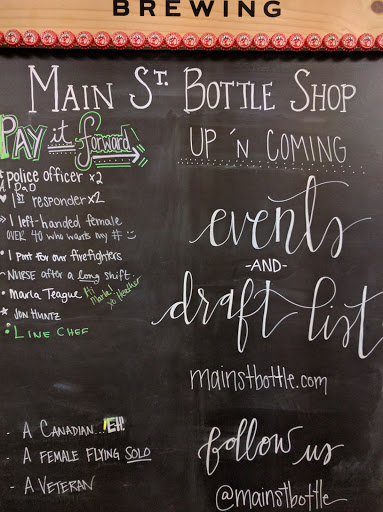 BREWING
MAIN ST. BOTTLE SHOP
PAY it forward
police officer x2
A DAD
1st responder x2
1 left-handed female
OVER 40 who wants my #
1 Pint for our firefighters
NURSE after a long shift.
Marla Teague
Hi Marla!
yo Heather
JON HUNTZ
LINE CHEF
- A CANADIAN...EH!
- A FEMALE FLYING SOLO
- A VETERAN
UP 'N COMING
events
-AND-
draft list
mainstbottle.com
follow us
@mainstbottle